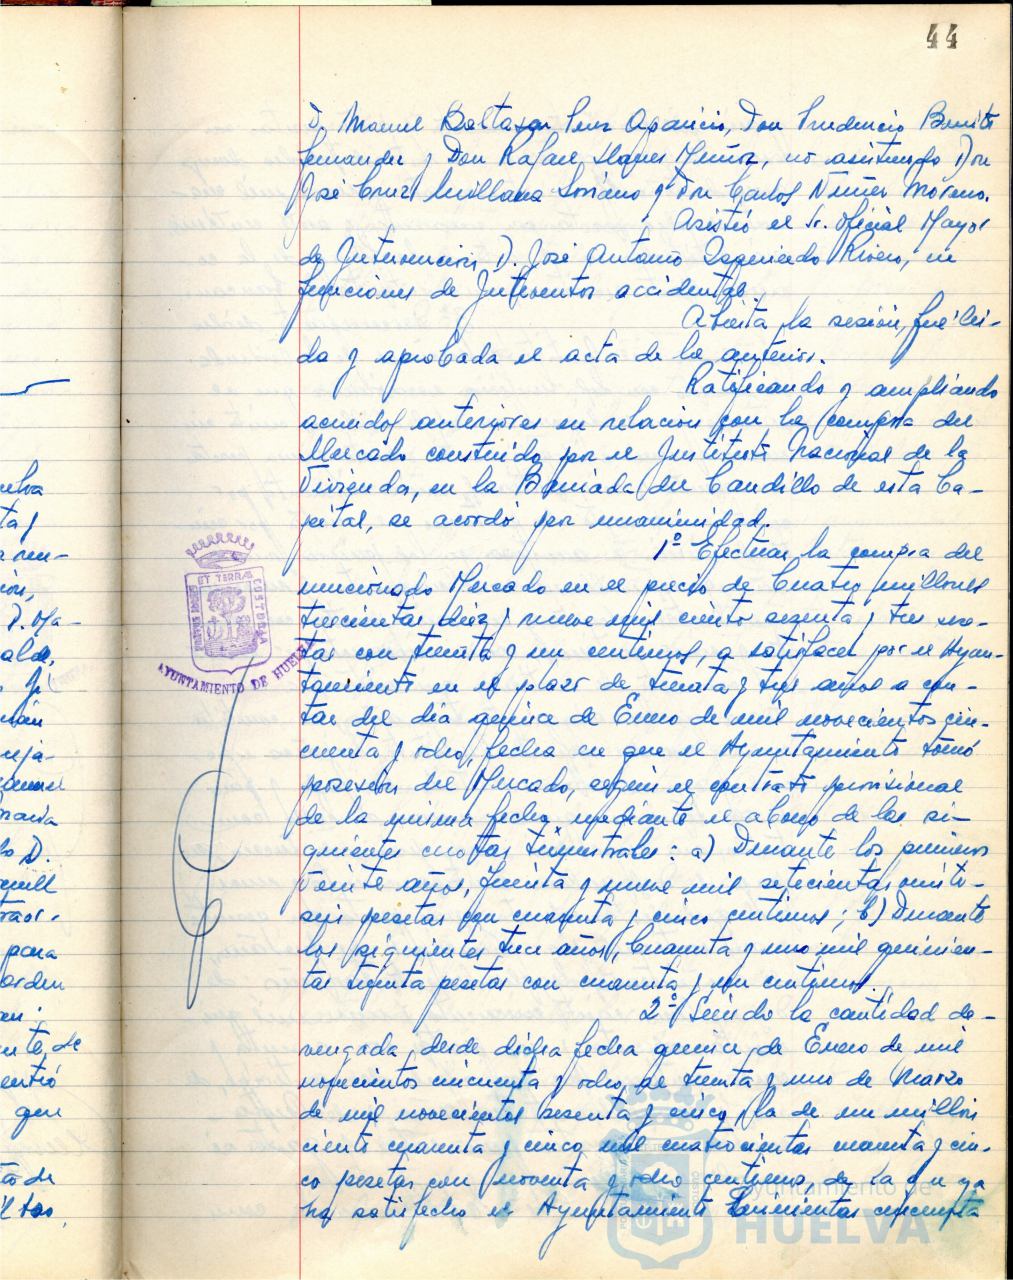 44
D. Manuel Baltasar Perez Aparicio, Don Prudencio Benito
Fernandez y Don Rafael Llanes Muñoz, no asistiendo Don
José Cruz Avillana Soriano y Don Carlos Nuñez Moreno.
Asistió el Sr. Oficial Mayor
de Intervención D. José Antonio Izquierdo Rivero, en
funciones de Interventor accidental.
Abierta la sesión, fué lei-
da y aprobada el acta de la anterior.
Ratificando y ampliando
acuerdos anteriores en relación con la compra del
Mercado construido por el Instituto Nacional de la
Vivienda, en la Barriada del Caudillo de esta Ca-
pital, se acordó por unanimidad.
1º Efectuar la compra del
mencionado Mercado en el precio de Cuatro millones
trescientas diez y nueve mil ciento sesenta y tres pese-
tas con treinta y un centimos, a satisfacer por el Ayun-
tamiento en el plazo de treinta y tres años a con-
tar del día quince de Enero de mil novecientos cin-
cuenta y ocho, fecha en que el Ayuntamiento tomó
posesión del Mercado, según el contrato provisional
de la misma fecha, mediante el abono de las si-
guientes cuotas trimestrales: a) Durante los primeros
veinte años, treinta y nueve mil setecientas veinti-
seis pesetas con cuarenta y cinco centimos; b) Durante
los siguientes trece años, Cuarenta y uno mil quinien-
tas treinta pesetas con cuarenta y un centimos.
2º Siendo la cantidad de-
vengada, desde dicha fecha quince de Enero de mil
novecientos cincuenta y ocho, al treinta y uno de Marzo
de mil novecientos sesenta y cinco, la de un millón
ciento cuarenta y cinco mil cuatrocientas cuarenta y cin-
co pesetas con noventa y ocho centimos, de la que ya
ha satisfecho el Ayuntamiento Seiscientas cincuenta
ET TERRAE
CUSTODIA
AYUNTAMIENTO DE HUELVA
Ayuntamiento de
HUELVA